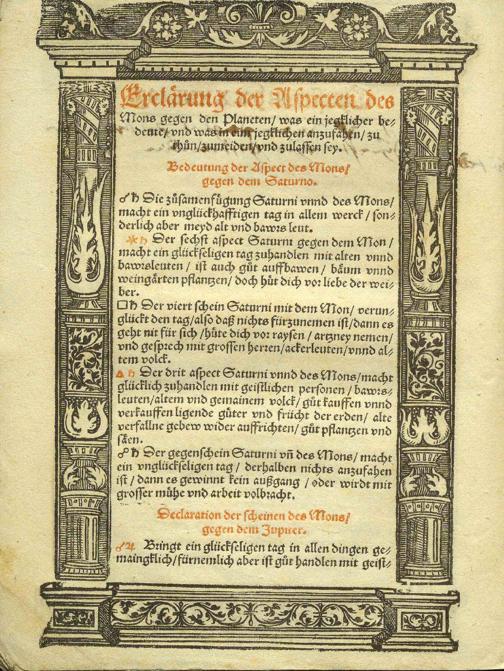 Erclärung der Aspecten des
Mons gegen den Planeten/ was ein jegklicher be-
deute/ vnd was in ein jegklichen anzufahen/ zů
thůn/ zumeiden/ vnd zulassen sey.
Bedeutung der Aspect des Mons/
gegen dem Saturno.
☌♄ Die zůsamenfügung Saturni vnnd des Mons/
macht ein vnglückhafftigen tag in allem werck/ son-
derlich aber meyd alt vnd bawrs leut.
⚹♄ Der sechst aspect Saturni gegen dem Mon/
macht ein glückseligen tag zuhandlen mit alten vnnd
bawrsleuten/ ist auch gůt auffbawen/ bäum vnnd
weingärten pflantzen/ doch hüt dich vor liebe der wei-
ber.
□♄ Der viert schein Saturni mit dem Mon/ verun-
glückt den tag/ also daß nichts fürzunemen ist/ dann es
geht nit für sich/ hüte dich vor raysen/ artzney nemen/
vnd gesprech mit grossen herren/ ackerleuten/ vnnd al-
tem volck.
△♄ Der drit aspect Saturni vnnd des Mons/ macht
glücklich zuhandlen mit geistlichen personen/ bawrs-
leuten/ altem vnd gemainem volck/ gůt kauffen vnnd
verkauffen ligende güter vnd frücht der erden/ alte
verfallne gebew wider auffrichten/ gůt pflantzen vnd
säen.
☍♄ Der gegenschein Saturni vñ des Mons/ macht
ein vnglückseligen tag/ derhalben nichts anzufahen
ist/ dann es gewinnt kein außgang/ oder wirdt mit
grosser mühe vnd arbeit volbracht.
Declaration der scheinen des Mons/
gegen dem Jupiter.
☌♃ Bringt ein glückseligen tag in allen dingen ge-
maingklich/ fürnemlich aber ist gůt handlen mit geist-